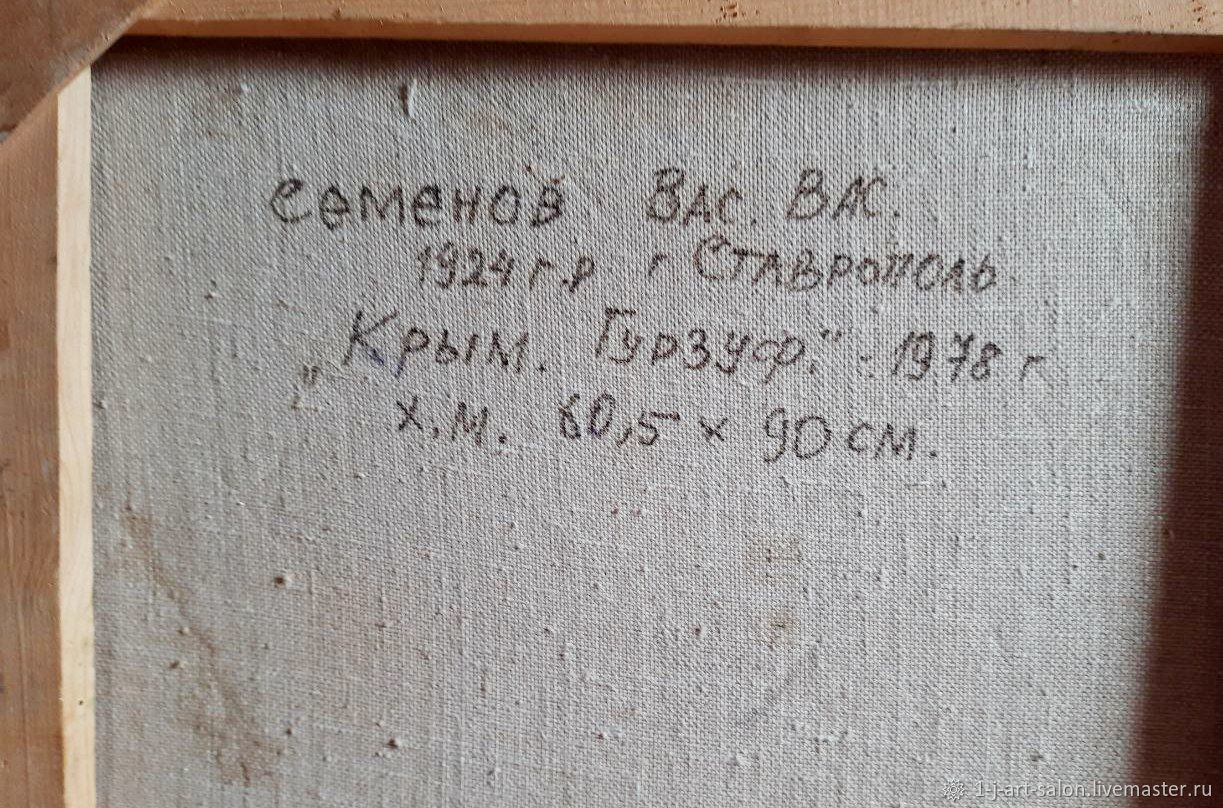 Семенов Вас. Вас.
1924 г.р г Ставрополь
„Крым. Гурзуф." . 1978 г
х,м. 60,5 х 90 см.
1-j-art-salon.livemaster.ru